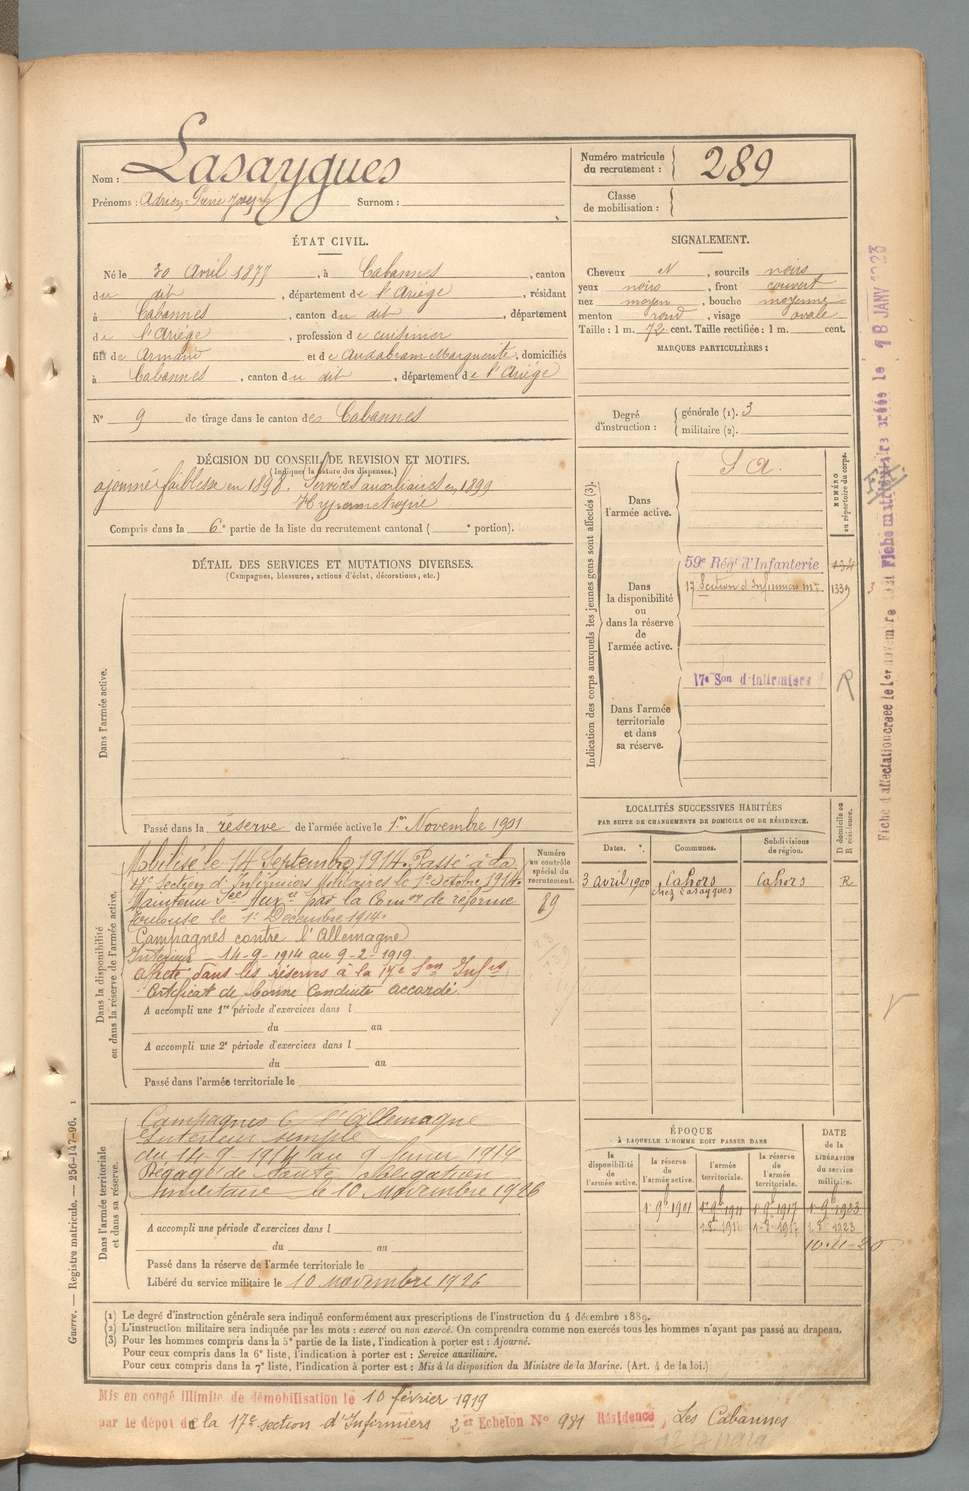 Nom : Lasaygues
Prénoms : Adrien Pierre Joseph Surnom :
Numéro matricule du recrutement : 289
Classe de mobilisation :
ÉTAT CIVIL.
Né le 30 Avril 1877, à Cabannes, canton
du dit, département de l'Ariége, résidant
à Cabannes, canton du dit, département
de l'Ariége, profession de cuisinier
fils de Armand et de Audabram Marguerite, domiciliés
à Cabannes, canton du dit, département de l'Ariége
N° 9 de tirage dans le canton des Cabannes
SIGNALEMENT.
Cheveux N, sourcils noirs
yeux noirs, front couvert
nez moyen, bouche moyenne
menton rond, visage ovale
Taille : 1 m. 72 cent. Taille rectifiée : 1 m. cent.
MARQUES PARTICULIÈRES :
Degré d'instruction : générale (1). 3
militaire (2).
DÉCISION DU CONSEIL DE REVISION ET MOTIFS.
(Indiquer la nature des dispenses.)
ajourné faiblesse en 1898. Services auxiliaires en 1899
Hypermétropie
Compris dans la 6e partie de la liste du recrutement cantonal ( e portion).
DÉTAIL DES SERVICES ET MUTATIONS DIVERSES.
(Campagnes, blessures, actions d'éclat, décorations, etc.)
Dans l'armée active.
Passé dans la réserve de l'armée active le 1er Novembre 1901
Indication des corps auxquels les jeunes gens sont affectés (3).
NUMÉRO au répertoire du corps.
Dans l'armée active.
S A.
Dans la disponibilité ou dans la réserve de l'armée active.
59e Régt d'Infanterie
17 Section d'Infirmiers mres
1339
Dans l'armée territoriale et dans sa réserve.
17e Son d'infirmiers
R
Dans la disponibilité ou dans la réserve de l'armée active.
Mobilisé le 14 Septembre 1914. Passé à la
17e section d'Infirmiers Militaires le 1er Octobre 1914.
Maintenu Sce Auxre par la Comon de réforme
Toulouse le 1er Décembre 1914.
Campagnes contre l'Allemagne
Intérieur - 14-9-1914 au 9-2-1919
Affecté dans les réserves à la 17e Son Infrs
Certificat de bonne Conduite accordé.
A accompli une 1re période d'exercices dans l
du au
A accompli une 2e période d'exercices dans l
du au
Passé dans l'armée territoriale le
Numéro au contrôle spécial du recrutement.
89
LOCALITÉS SUCCESSIVES HABITÉES
PAR SUITE DE CHANGEMENTS DE DOMICILE OU DE RÉSIDENCE.
Dates. Communes. Subdivisions de région. D domicile ou R résidence.
3 avril 1900 Cahors Cahors R
chez Lasaygues
Dans l'armée territoriale et dans sa réserve.
Campagnes C l'Allemagne
Intérieur simple
du 14-9-1914 au 9 février 1919
Dégagé de toute obligation
militaire le 10 Novembre 1926
A accompli une période d'exercices dans l
du au
Passé dans la réserve de l'armée territoriale le
Libéré du service militaire le 10 novembre 1926
ÉPOQUE
À LAQUELLE L'HOMME DOIT PASSER DANS
la disponibilité de l'armée active. la réserve de l'armée active. l'armée territoriale. la réserve de l'armée territoriale. DATE de la LIBÉRATION du service militaire.
1-9bre 1901 1er 9bre 1911 1er 9bre 1917 1er 9bre 1923
1-8-1911 1-8-1917 1-8-1923
(1) Le degré d'instruction générale sera indiqué conformément aux prescriptions de l'instruction du 4 décembre 1889.
(2) L'instruction militaire sera indiquée par les mots : exercé ou non exercé. On comprendra comme non exercés tous les hommes n'ayant pas passé au drapeau.
(3) Pour les hommes compris dans la 5e partie de la liste, l'indication à porter est : Ajourné.
Pour ceux compris dans la 6e liste, l'indication à porter est : Service auxiliaire.
Pour ceux compris dans la 7e liste, l'indication à porter est : Mis à la disposition du Ministre de la Marine. (Art. 4 de la loi.)
Mis en congé illimité de démobilisation le 10 février 1919
par le dépôt de la 17e section d'Infirmiers 2er Echelon N° 981 Résidence, Les Cabannes
Guerre. — Registre matricule. — 256-147-96.
Fiche d'affectation créée le 1er novembre
Fiche matriculaire créée le 18 JANV 1923